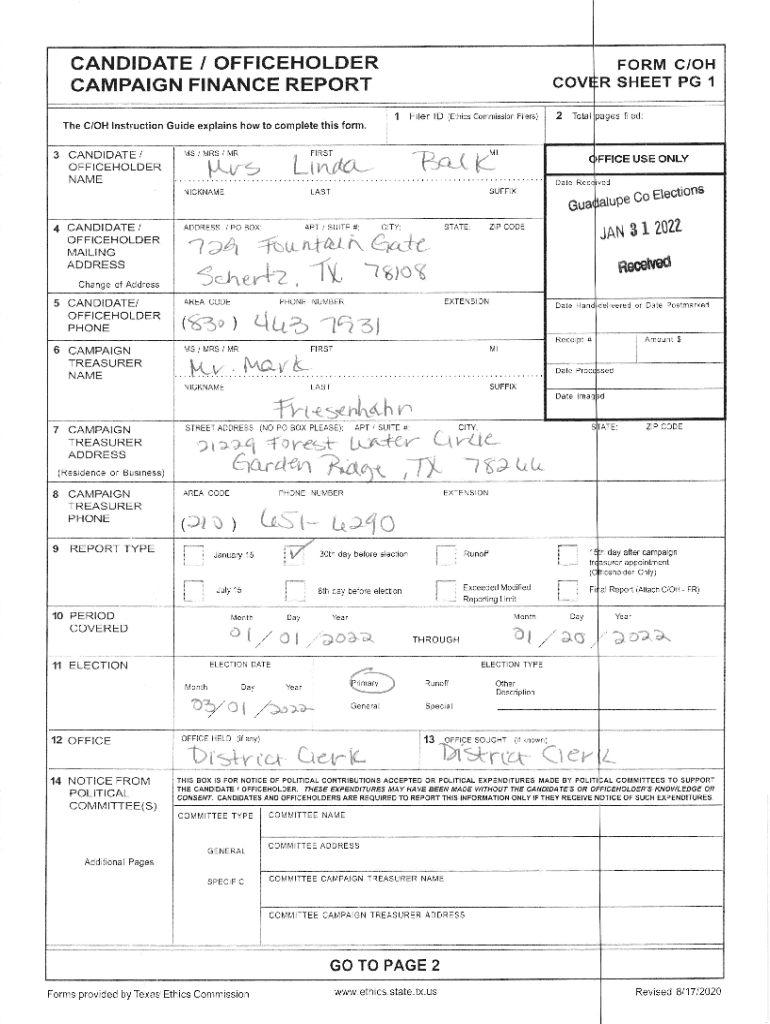 CANDIDATE / OFFICEHOLDER
CAMPAIGN FINANCE REPORT
FORM C/OH
COVER SHEET PG 1
The C/OH Instruction Guide explains how to complete this form.
1 Filer ID (Ethics Commission Filers)
2 Total pages filed:
3 CANDIDATE / OFFICEHOLDER NAME
MS / MRS / MR FIRST MI
Mrs Linda Balk
NICKNAME LAST SUFFIX
OFFICE USE ONLY
Date Received
Guadalupe Co Elections
JAN 31 2022
Received
4 CANDIDATE / OFFICEHOLDER MAILING ADDRESS
Change of Address
ADDRESS / PO BOX; APT / SUITE #; CITY; STATE; ZIP CODE
729 Fountain Gate
Schertz, TX 78108
5 CANDIDATE/ OFFICEHOLDER PHONE
AREA CODE PHONE NUMBER EXTENSION
(830) 443 7931
Date Hand-delivered or Date Postmarked
Receipt # Amount $
Date Processed
Date Imaged
6 CAMPAIGN TREASURER NAME
MS / MRS / MR FIRST MI
Mr. Mark
NICKNAME LAST SUFFIX
Friesenhahn
7 CAMPAIGN TREASURER ADDRESS
(Residence or Business)
STREET ADDRESS (NO PO BOX PLEASE); APT / SUITE #; CITY; STATE; ZIP CODE
21229 Forest Water Circle
Garden Ridge, TX 78266
8 CAMPAIGN TREASURER PHONE
AREA CODE PHONE NUMBER EXTENSION
(210) 651-6290
9 REPORT TYPE
January 15 30th day before election Runoff 15th day after campaign treasurer appointment (Officeholder Only)
July 15 8th day before election Exceeded Modified Reporting Limit Final Report (Attach C/OH - FR)
10 PERIOD COVERED
Month Day Year Month Day Year
01 / 01 / 2022 THROUGH 01 / 20 / 2022
11 ELECTION
ELECTION DATE ELECTION TYPE
Month Day Year
03/01/2022
Primary Runoff Other Description
General Special
12 OFFICE
OFFICE HELD (if any)
District Clerk
13 OFFICE SOUGHT (if known)
District Clerk
14 NOTICE FROM POLITICAL COMMITTEE(S)
THIS BOX IS FOR NOTICE OF POLITICAL CONTRIBUTIONS ACCEPTED OR POLITICAL EXPENDITURES MADE BY POLITICAL COMMITTEES TO SUPPORT
THE CANDIDATE / OFFICEHOLDER. THESE EXPENDITURES MAY HAVE BEEN MADE WITHOUT THE CANDIDATE'S OR OFFICEHOLDER'S KNOWLEDGE OR
CONSENT. CANDIDATES AND OFFICEHOLDERS ARE REQUIRED TO REPORT THIS INFORMATION ONLY IF THEY RECEIVE NOTICE OF SUCH EXPENDITURES.
COMMITTEE TYPE COMMITTEE NAME
GENERAL
COMMITTEE ADDRESS
Additional Pages
SPECIFIC
COMMITTEE CAMPAIGN TREASURER NAME
COMMITTEE CAMPAIGN TREASURER ADDRESS
GO TO PAGE 2
Forms provided by Texas Ethics Commission www.ethics.state.tx.us Revised 8/17/2020